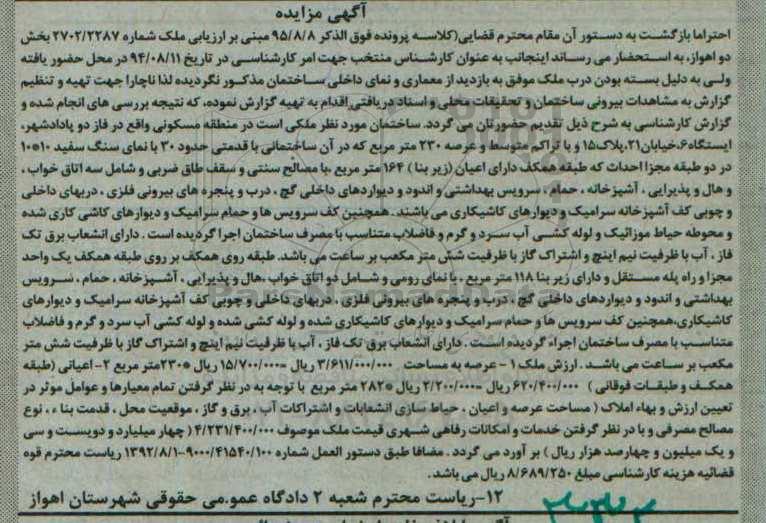 آگهی مزایده
احتراما بازگشت به دستور آن مقام محترم قضایی(کلاسه پرونده فوق الذکر ۹۵/۸/۸ مبنی بر ارزیابی ملک شماره ۲۷۰۲/۲۲۸۷ بخش
دو اهواز، به استحضار می رساند اینجانب به عنوان کارشناس منتخب جهت امر کارشناسی در تاریخ ۹۴/۰۸/۱۱ در محل حضور یافته
ولی به دلیل بسته بودن درب ملک موفق به بازدید از معماری و نمای داخلی ساختمان مذکور نگردیده لذا ناچارا جهت تهیه و تنظیم
گزارش به مشاهدات بیرونی ساختمان و تحقیقات محلی و اسناد دریافتی اقدام به تهیه گزارش نموده، که نتیجه بررسی های انجام شده و
گزارش کارشناسی به شرح ذیل تقدیم حضورتان می گردد. ساختمان مورد نظر ملکی است در منطقه مسکونی واقع در فاز دو پادادشهر،
ایستگاه۶،خیابان۲۱،پلاک۱۵ و با تراکم متوسط و عرصه ۲۳۰ متر مربع که در آن ساختمانی با قدمتی حدود ۳۰ با نمای سنگ سفید ۱۰*۱۰
در دو طبقه مجزا احداث که طبقه همکف دارای اعیان (زیر بنا ) ۱۶۴ متر مربع ،با مصالح سنتی و سقف طاق ضربی و شامل سه اتاق خواب ،
و هال و پذیرایی ، آشپزخانه ، حمام ، سرویس بهداشتی و اندود و دیواردهای داخلی گچ ، درب و پنجره های بیرونی فلزی ، دربهای داخلی
و چوبی کف آشپزخانه سرامیک و دیوارهای کاشیکاری می باشند . همچنین کف سرویس ها و حمام سرامیک و دیوارهای کاشی کاری شده
و محوطه حیاط موزائیک و لوله کشی آب سرد و گرم و فاضلاب متناسب با مصرف ساختمان اجرا گردیده است . دارای انشعاب برق تک
فاز ، آب با ظرفیت نیم اینچ و اشتراک گاز با ظرفیت شش متر مکعب بر ساعت می باشد. طبقه روی همکف بر روی طبقه همکف یک واحد
مجزا و راه پله مستقل و دارای زیر بنا ۱۱۸ متر مربع ، با نمای رومی و شامل دو اتاق خواب ،هال و پذیرایی ، آشپزخانه ، حمام ، سرویس
بهداشتی و اندود و دیواردهای داخلی گچ ، درب و پنجره های بیرونی فلزی ، دربهای داخلی و چوبی کف آشپزخانه سرامیک و دیوارهای
کاشیکاری،همچنین کف سرویس ها و حمام سرامیک و دیوارهای کاشیکاری شده و لوله کشی شده و لوله کشی آب سرد و گرم و فاضلاب
متناسب با مصرف ساختمان اجراء گردیده است . دارای انشعاب برق تک فاز ، آب با ظرفیت نیم اینچ و اشتراک گاز با ظرفیت شش متر
مکعب بر ساعت می باشد . ارزش ملک ۱ - عرصه به مساحت ۳/۶۱۱/۰۰۰/۰۰۰ ریال =۱۵/۷۰۰/۰۰۰ ریال *۲۳۰متر مربع ۲- اعیانی (طبقه
همکف و طبقات فوقانی ) ۶۲۰/۴۰۰/۰۰۰ ریال =۲/۲۰۰/۰۰۰ ریال *۲۸۲ متر مربع با توجه به در نظر گرفتن تمام معیارها و عوامل موثر در
تعیین ارزش و بهاء املاک ( مساحت عرصه و اعیان ، حیاط سازی انشعابات و اشتراکات آب ، برق و گاز ، موقعیت محل ، قدمت بناء ، نوع
مصالح مصرفی و با در نظر گرفتن خدمات و امکانات رفاهی شهری قیمت ملک موصوف ۴/۲۳۱/۴۰۰/۰۰۰ ( چهار میلیارد و دویست و سی
و یک میلیون و چهارصد هزار ریال ) بر آورد می گردد . مضافا طبق دستور العمل شماره ۹۰۰۰/۴۱۵۴۰/۱۰۰-۱۳۹۲/۸/۱ ریاست محترم قوه
قضائیه هزینه کارشناسی مبلغ ۸/۶۸۹/۲۵۰ ریال می باشد.
۱۲-ریاست محترم شعبه ۲ دادگاه عمومی حقوقی شهرستان اهواز